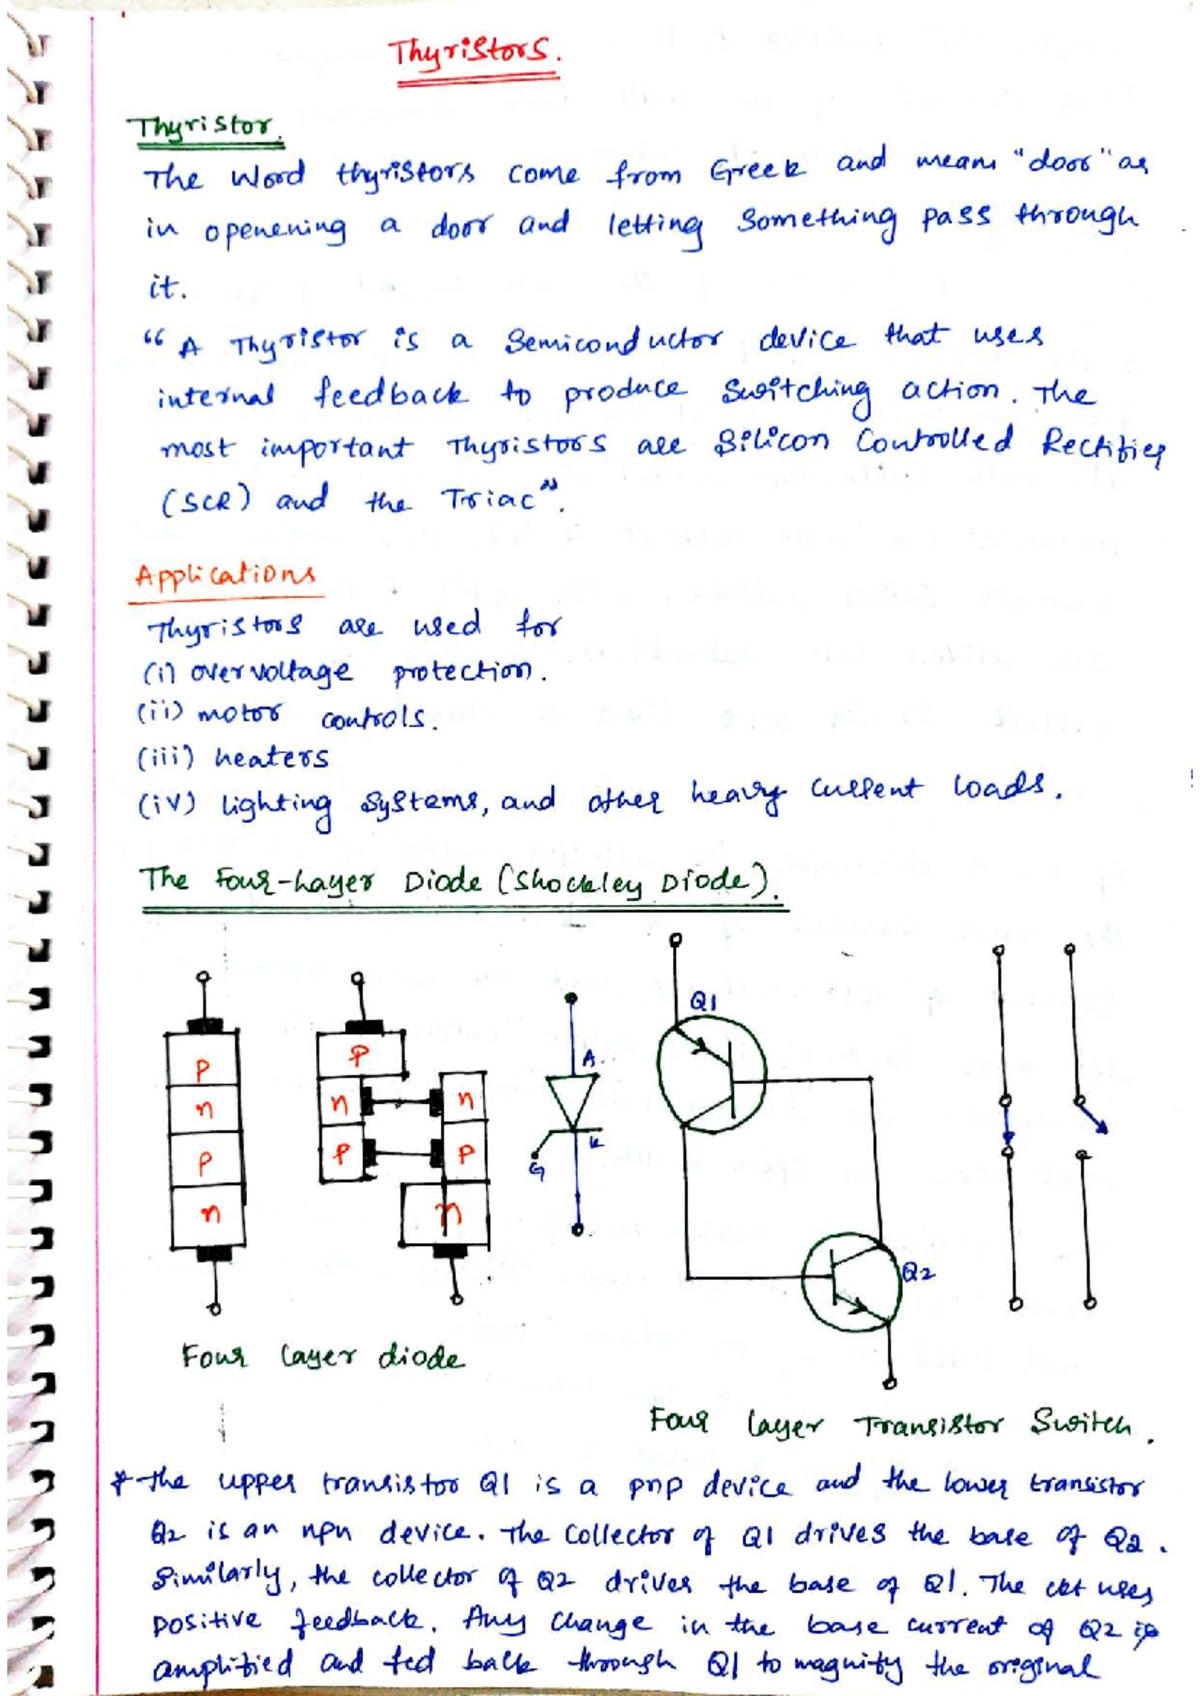 Thyristors.
Thyristor.
The word thyristors come from Greek and means "door" as
in openening a door and letting something pass through
it.
"A Thyristor is a semiconductor device that uses
internal feedback to produce switching action. The
most important Thyristors are Silicon Controlled Rectifier
(SCR) and the Triac".
Applications
Thyristors are used for
(i) overvoltage protection.
(ii) motor controls.
(iii) heaters
(iv) lighting systems, and other heavy current loads.
The Four-Layer Diode (Shockley Diode).
p
n
p
n
p
n
p
n
p
n
A
K
G
Q1
Q2
Four layer diode
Four layer Transistor Switch.
* The upper transistor Q1 is a pnp device and the lower transistor
Q2 is an npn device. The collector of Q1 drives the base of Q2.
Similarly, the collector of Q2 drives the base of Q1. The ckt uses
positive feedback. Any change in the base current of Q2 is
amplified and fed back through Q1 to magnify the original